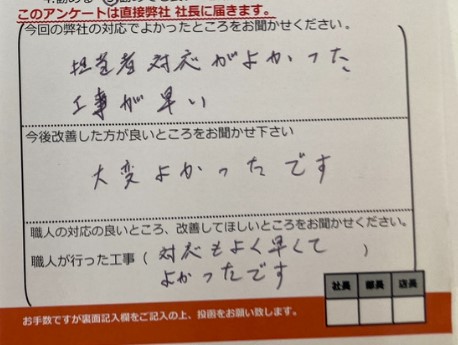 このアンケートは直接弊社 社長に届きます。
今回の弊社の対応でよかったところをお聞かせください。
担当者対応がよかった
工事が早い
今後改善した方が良いところをお聞かせ下さい
大変よかったです
職人の対応の良いところ、改善してほしいところをお聞かせください。
職人が行った工事（対応もよく早くて
よかったです）
社長 部長 店長
お手数ですが裏面記入欄をご記入の上、投函をお願い致します。